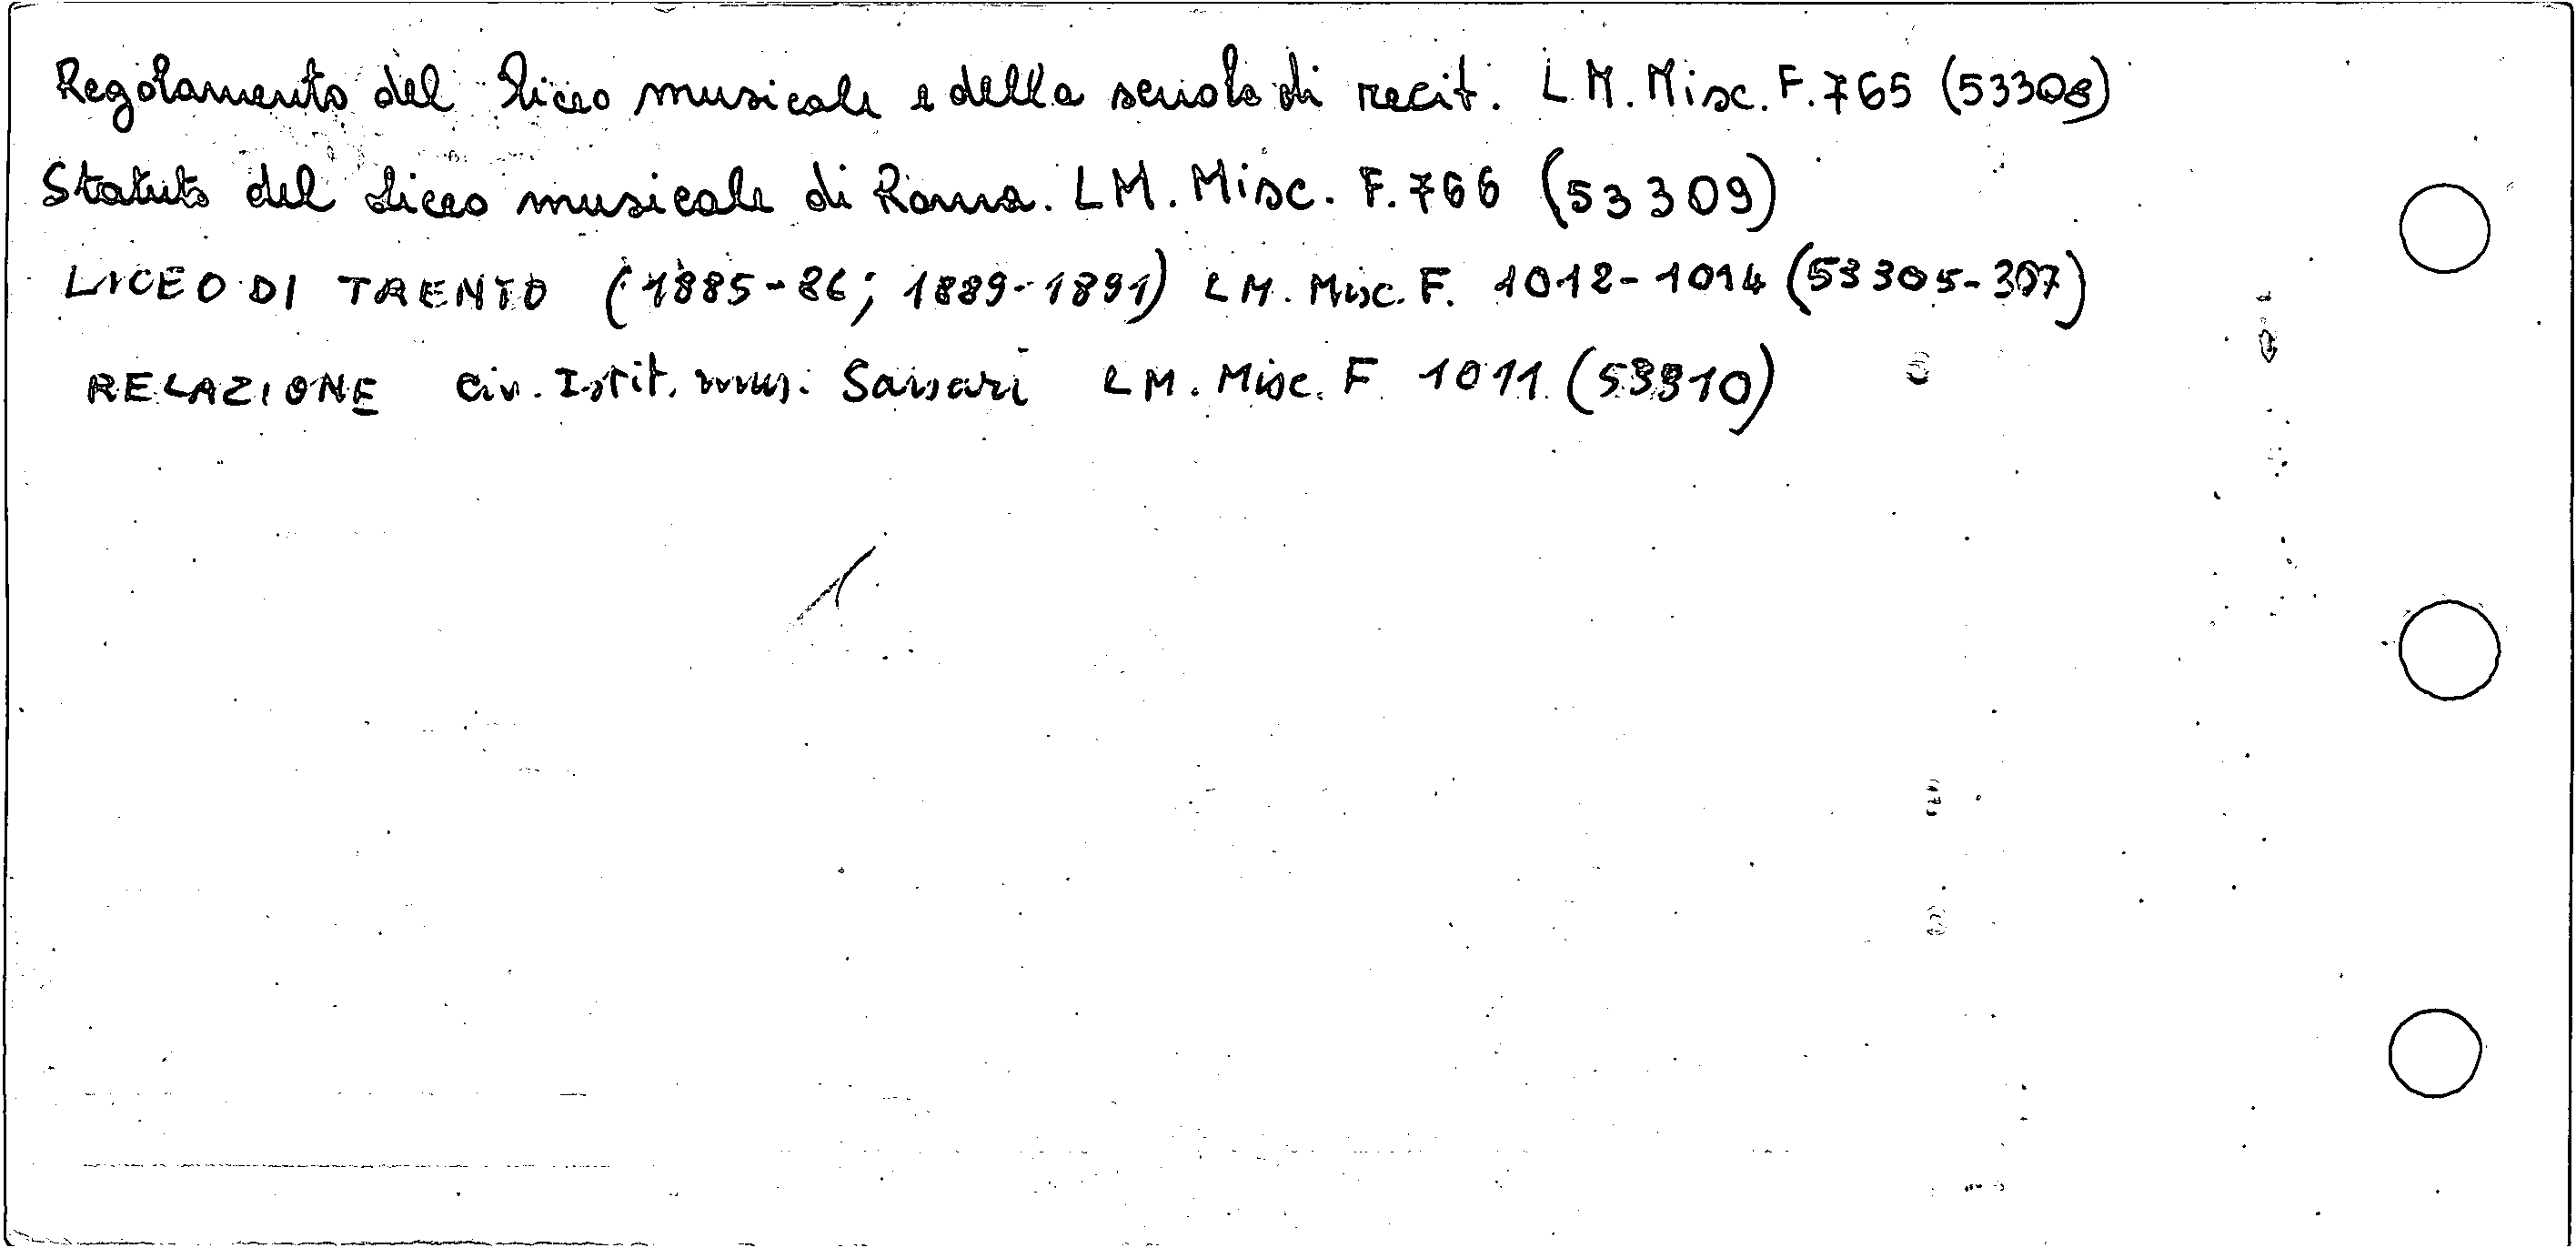 Regolamento del Liceo musicale e della scuola di recit. L.M. Misc. F. 765 (53308)
Statuto del Liceo musicale di Roma. LM. Misc. F. 766 (53309)
LICEO DI TRENTO (1885-86; 1889-1891) LM. Misc. F. 1012-1014 (53305-307)
RELAZIONE Civ. Istit. mus. Sassari LM. Misc. F. 1011 (53310)